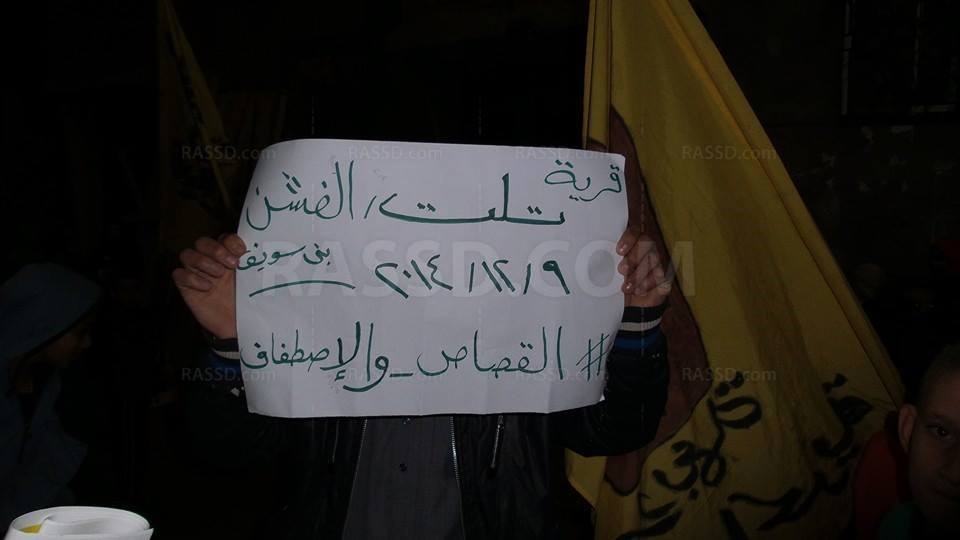 قرية
تلت / الفشن
بنى سويف
٢٠١٤/١٢/٩
# القصاص_والإصطفاف
RASSD.com
RASSD.com
RASSD.com
RASSD.COM
RASSD.com
RASSD.com
RASSD.com